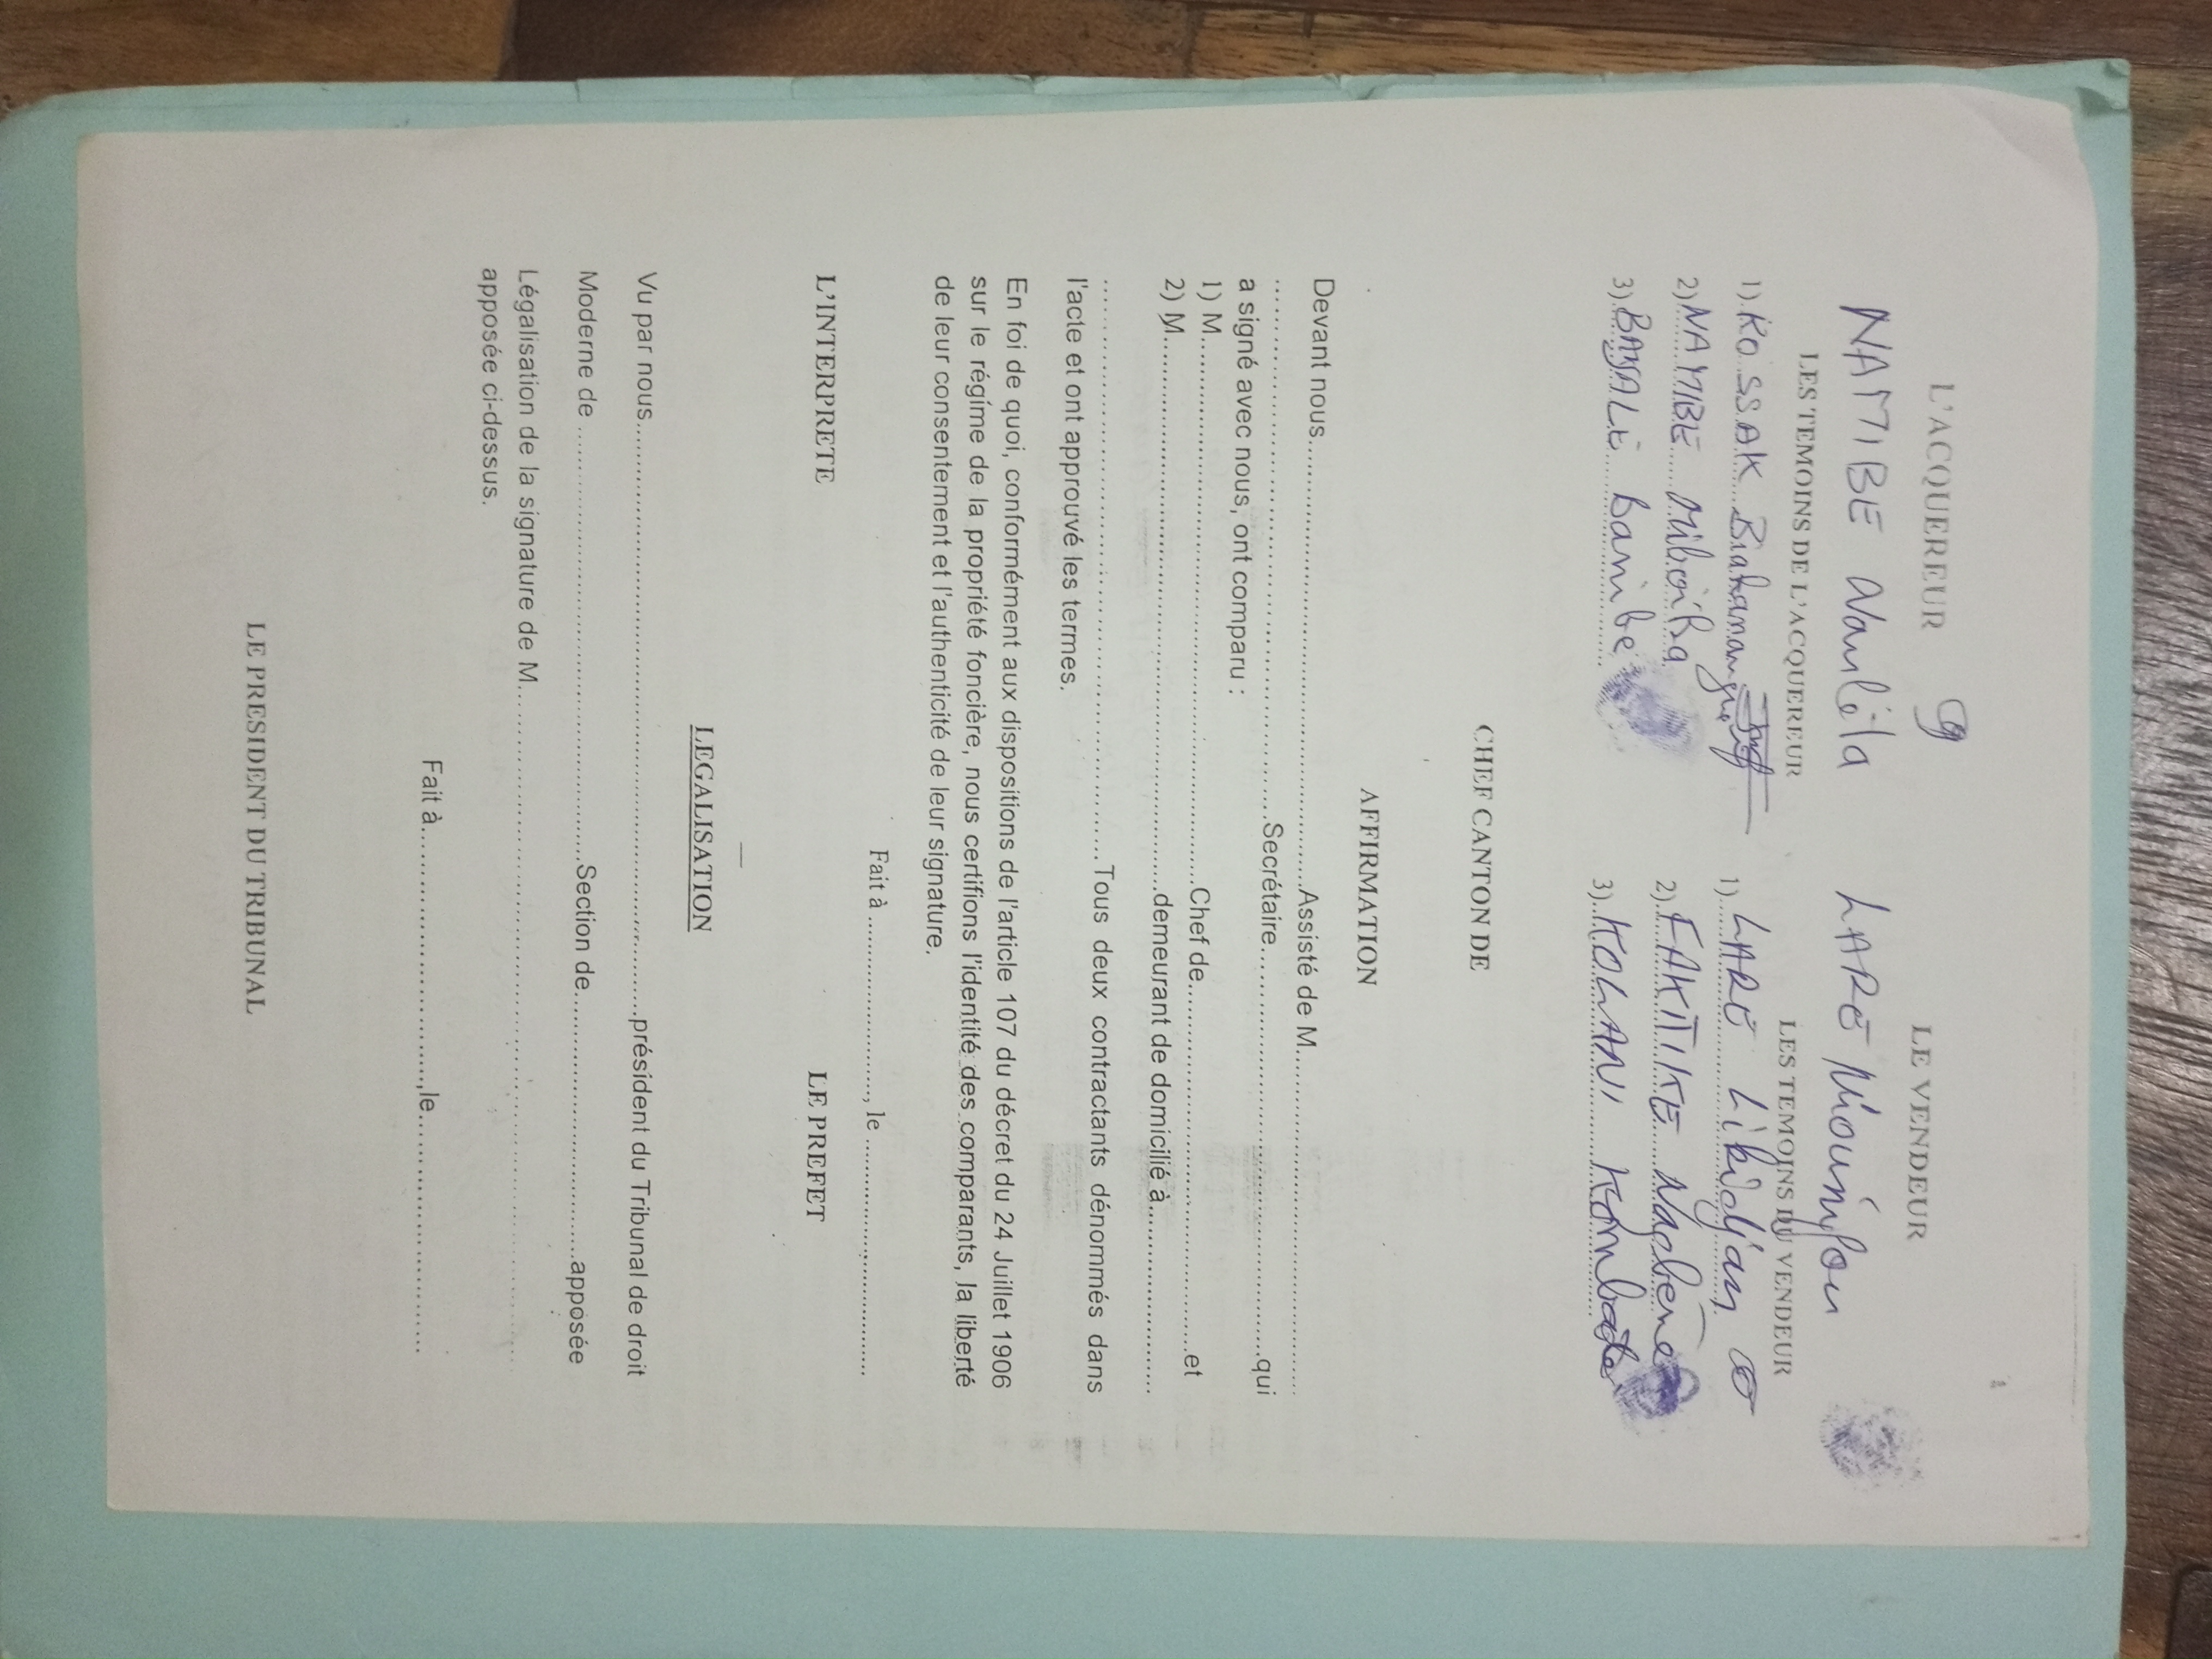 L'ACQUEREUR
LE VENDEUR
NAMIBE Naniéla
LARE Niounifou
LES TEMOINS DE L'ACQUEREUR
LES TEMOINS DU VENDEUR
1).KOSSAK
1)..LARE Likidjan
2)NAMIBE
2)..FAKITIKE
3).BANALE Banibe
3)..KOLANI Kombate
CHEF CANTON DE
AFFIRMATION
Devant nous..........Assisté de M..........
..........Secrétaire..........qui
a signé avec nous, ont comparu :
1) M..........Chef de..........et
2) M..........demeurant de domicilié à..........
..........Tous deux contractants dénommés dans
l'acte et ont approuvé les termes.
En foi de quoi, conformément aux dispositions de l'article 107 du décret du 24 Juillet 1906
sur le régime de la propriété foncière, nous certifions l'identité des comparants, la liberté
de leur consentement et l'authenticité de leur signature.
Fait à .........., le ..........
L'INTERPRETE
LE PREFET
LEGALISATION
Vu par nous..........président du Tribunal de droit
Moderne de ..........Section de..........apposée
Légalisation de la signature de M..........
apposée ci-dessus.
Fait à..........,le..........
LE PRESIDENT DU TRIBUNAL